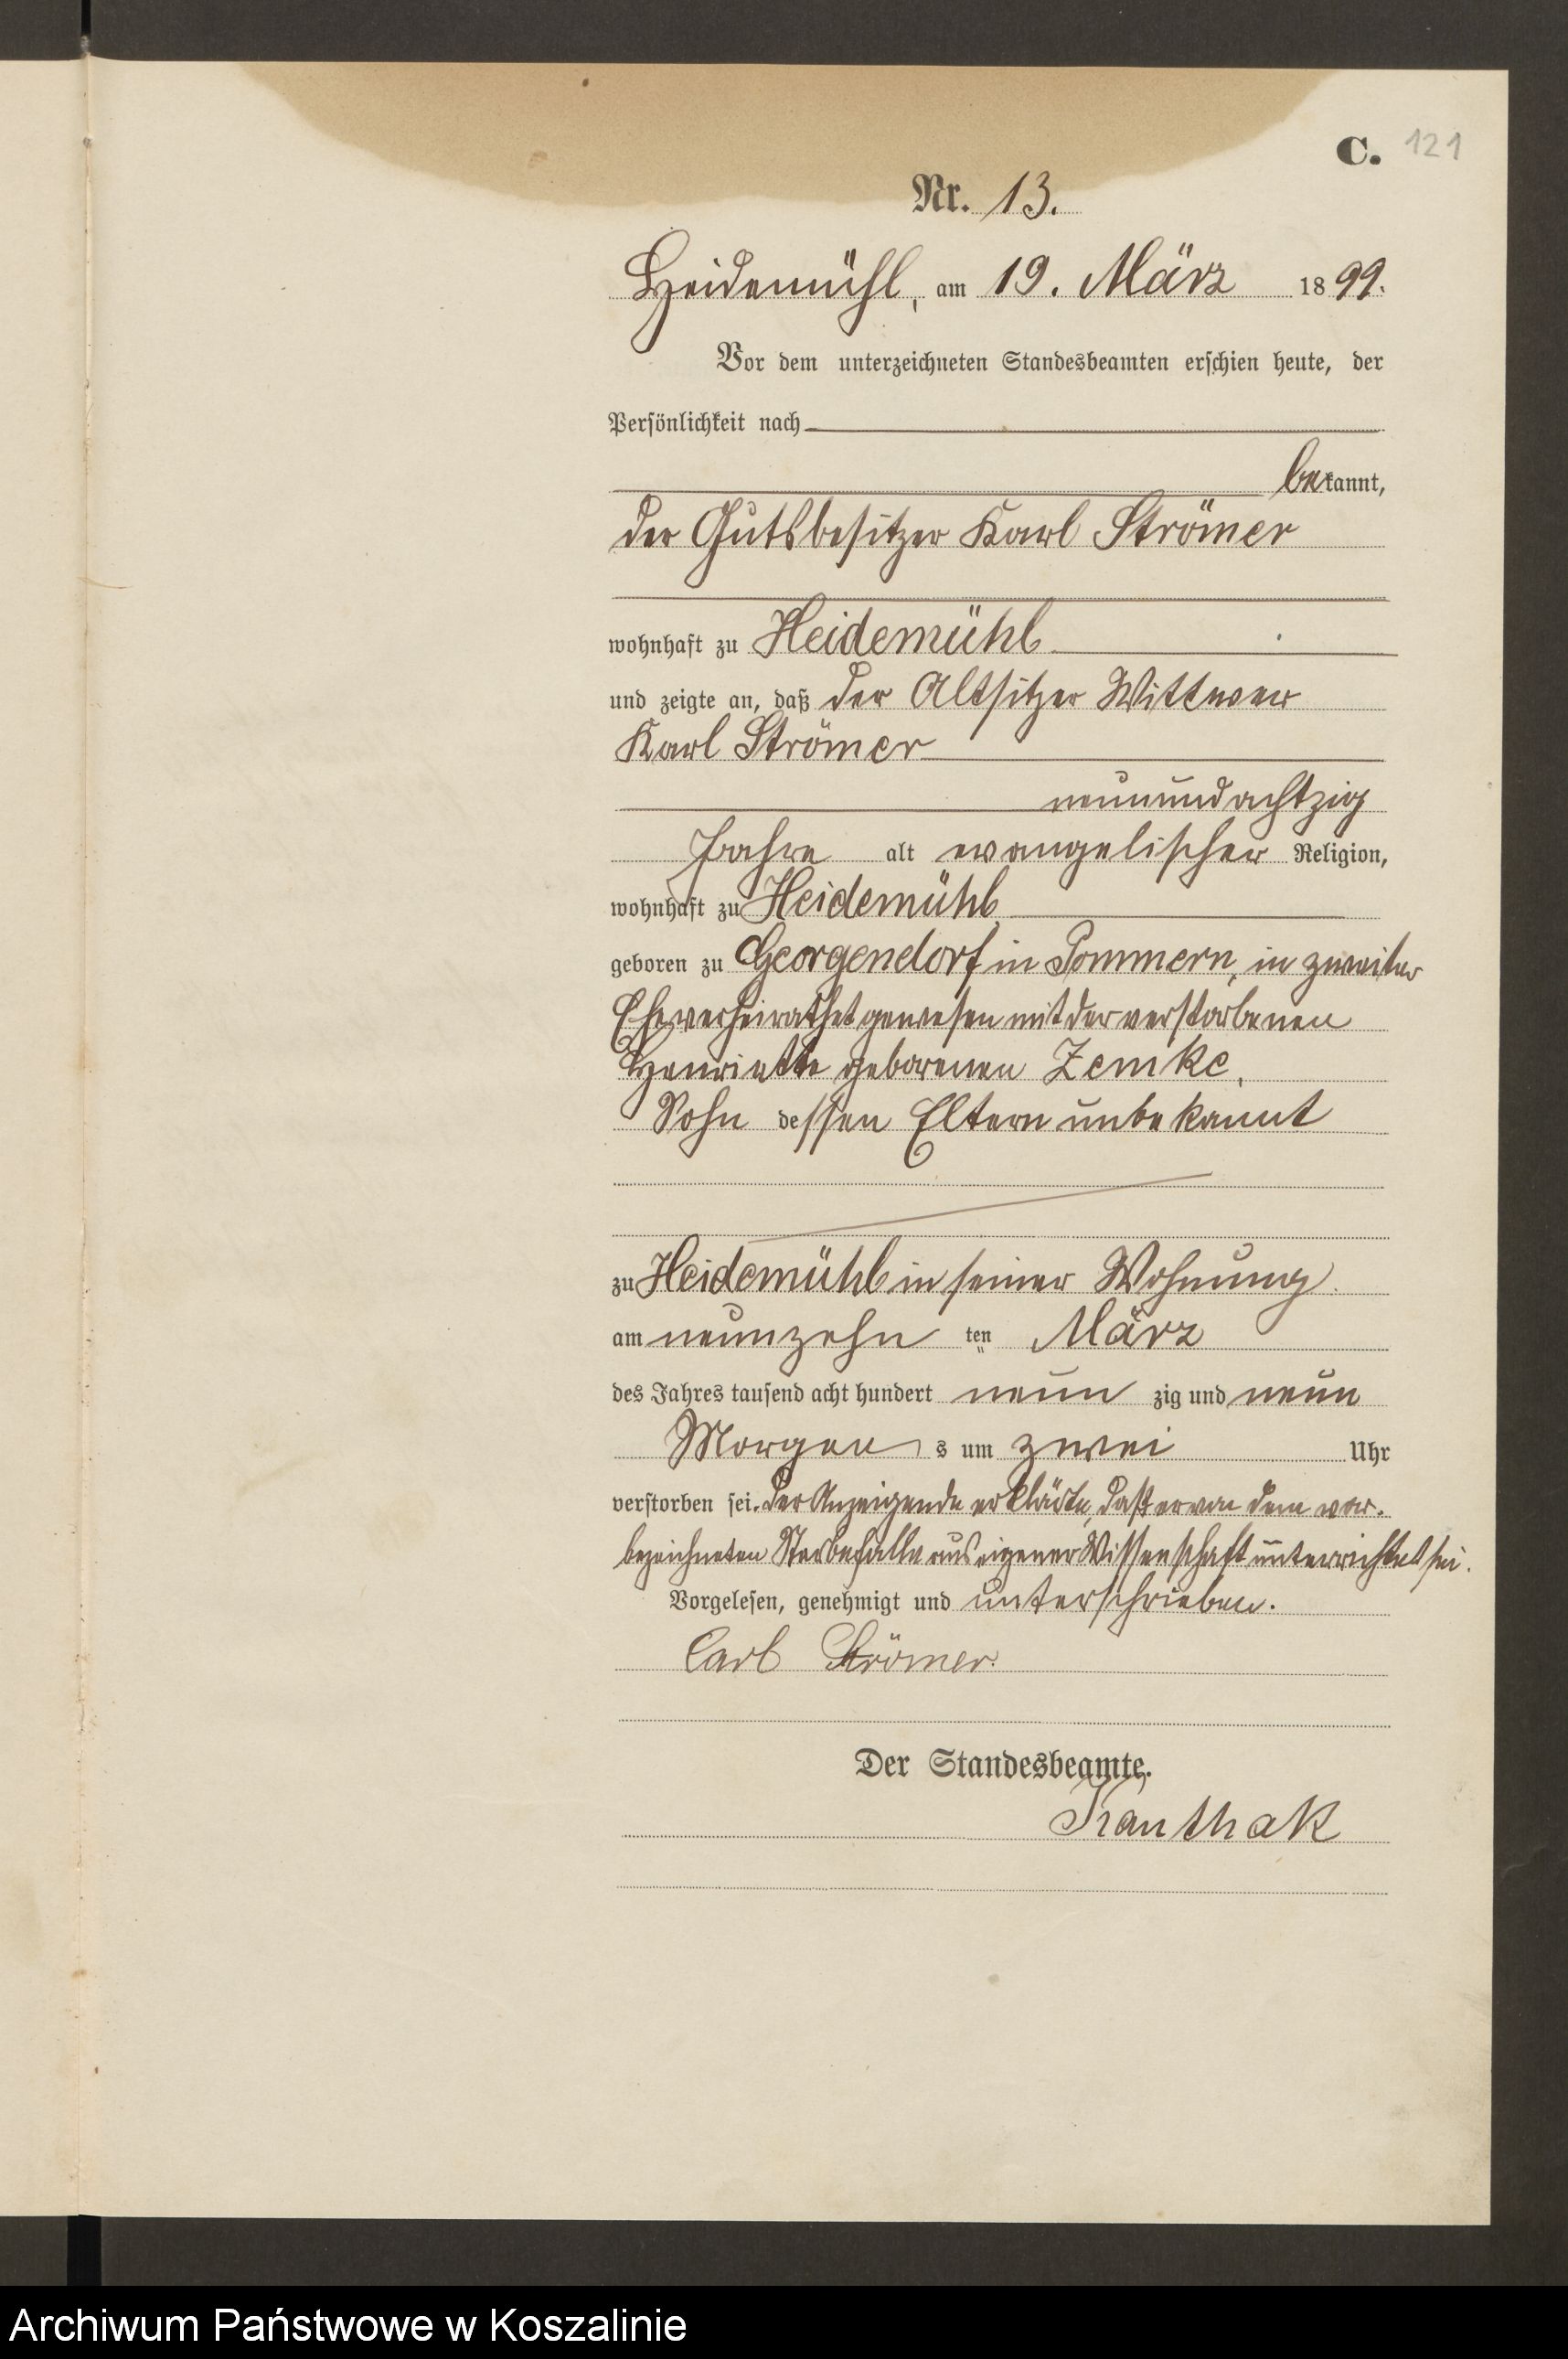 C. 121
Nr. 13.
Heidemühl, am 19. März 1899.
Vor dem unterzeichneten Standesbeamten erschien heute, der
Persönlichkeit nach
bekannt,
der Gutsbesitzer Karl Strömer
wohnhaft zu Heidemühl
und zeigte an, daß der Altsitzer Wittwer
Karl Strömer
neunundachtzig
Jahre alt evangelischer Religion,
wohnhaft zu Heidemühl
geboren zu Georgendorf in Pommern, in zweiter
Ehe verheirathet gewesen mit der verstorbenen
Henriette geborenen Zemke,
Sohn dessen Eltern unbekannt
zu Heidemühl in seiner Wohnung
am neunzehn ten März
des Jahres tausend acht hundert neun zig und neun
Morgen s um zwei Uhr
verstorben sei. Der Anzeigende erklärte, daß er von dem vor-
bezeichneten Sterbefalle aus eigener Wissenschaft unterrichtet sei.
Vorgelesen, genehmigt und unterschrieben.
Carl Strömer.
Der Standesbeamte.
Kanthak
Archiwum Państwowe w Koszalinie